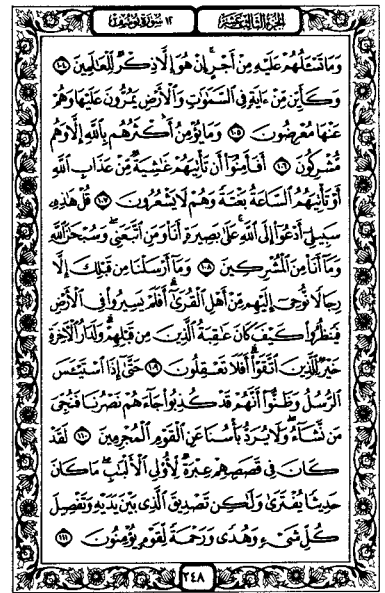 الجزء الثالث عشر
١٢ سورة يوسف
وَمَا تَسْـَٔلُهُمْ عَلَيْهِ مِنْ أَجْرٍ إِنْ هُوَ إِلَّا ذِكْرٌ لِّلْعَـٰلَمِينَ ١٠٤
وَكَأَيِّن مِّنْ ءَايَةٍ فِى ٱلسَّمَـٰوَٰتِ وَٱلْأَرْضِ يَمُرُّونَ عَلَيْهَا وَهُمْ
عَنْهَا مُعْرِضُونَ ١٠٥ وَمَا يُؤْمِنُ أَكْثَرُهُم بِٱللَّهِ إِلَّا وَهُم
مُّشْرِكُونَ ١٠٦ أَفَأَمِنُوٓا۟ أَن تَأْتِيَهُمْ غَـٰشِيَةٌ مِّنْ عَذَابِ ٱللَّهِ
أَوْ تَأْتِيَهُمُ ٱلسَّاعَةُ بَغْتَةً وَهُمْ لَا يَشْعُرُونَ ١٠٧ قُلْ هَـٰذِهِۦ
سَبِيلِىٓ أَدْعُوٓا۟ إِلَى ٱللَّهِ عَلَىٰ بَصِيرَةٍ أَنَا۠ وَمَنِ ٱتَّبَعَنِى وَسُبْحَـٰنَ ٱللَّهِ
وَمَآ أَنَا۠ مِنَ ٱلْمُشْرِكِينَ ١٠٨ وَمَآ أَرْسَلْنَا مِن قَبْلِكَ إِلَّا
رِجَالًا نُّوحِىٓ إِلَيْهِم مِّنْ أَهْلِ ٱلْقُرَىٰٓ أَفَلَمْ يَسِيرُوا۟ فِى ٱلْأَرْضِ
فَيَنظُرُوا۟ كَيْفَ كَانَ عَـٰقِبَةُ ٱلَّذِينَ مِن قَبْلِهِمْ وَلَدَارُ ٱلْـَٔاخِرَةِ
خَيْرٌ لِّلَّذِينَ ٱتَّقَوْا۟ أَفَلَا تَعْقِلُونَ ١٠٩ حَتَّىٰٓ إِذَا ٱسْتَيْـَٔسَ
ٱلرُّسُلُ وَظَنُّوٓا۟ أَنَّهُمْ قَدْ كُذِبُوا۟ جَآءَهُمْ نَصْرُنَا فَنُجِّىَ
مَن نَّشَآءُ وَلَا يُرَدُّ بَأْسُنَا عَنِ ٱلْقَوْمِ ٱلْمُجْرِمِينَ ١١٠ لَقَدْ
كَانَ فِى قَصَصِهِمْ عِبْرَةٌ لِّأُو۟لِى ٱلْأَلْبَـٰبِ مَا كَانَ
حَدِيثًا يُفْتَرَىٰ وَلَـٰكِن تَصْدِيقَ ٱلَّذِى بَيْنَ يَدَيْهِ وَتَفْصِيلَ
كُلِّ شَىْءٍ وَهُدًى وَرَحْمَةً لِّقَوْمٍ يُؤْمِنُونَ ١١١
٢٤٨